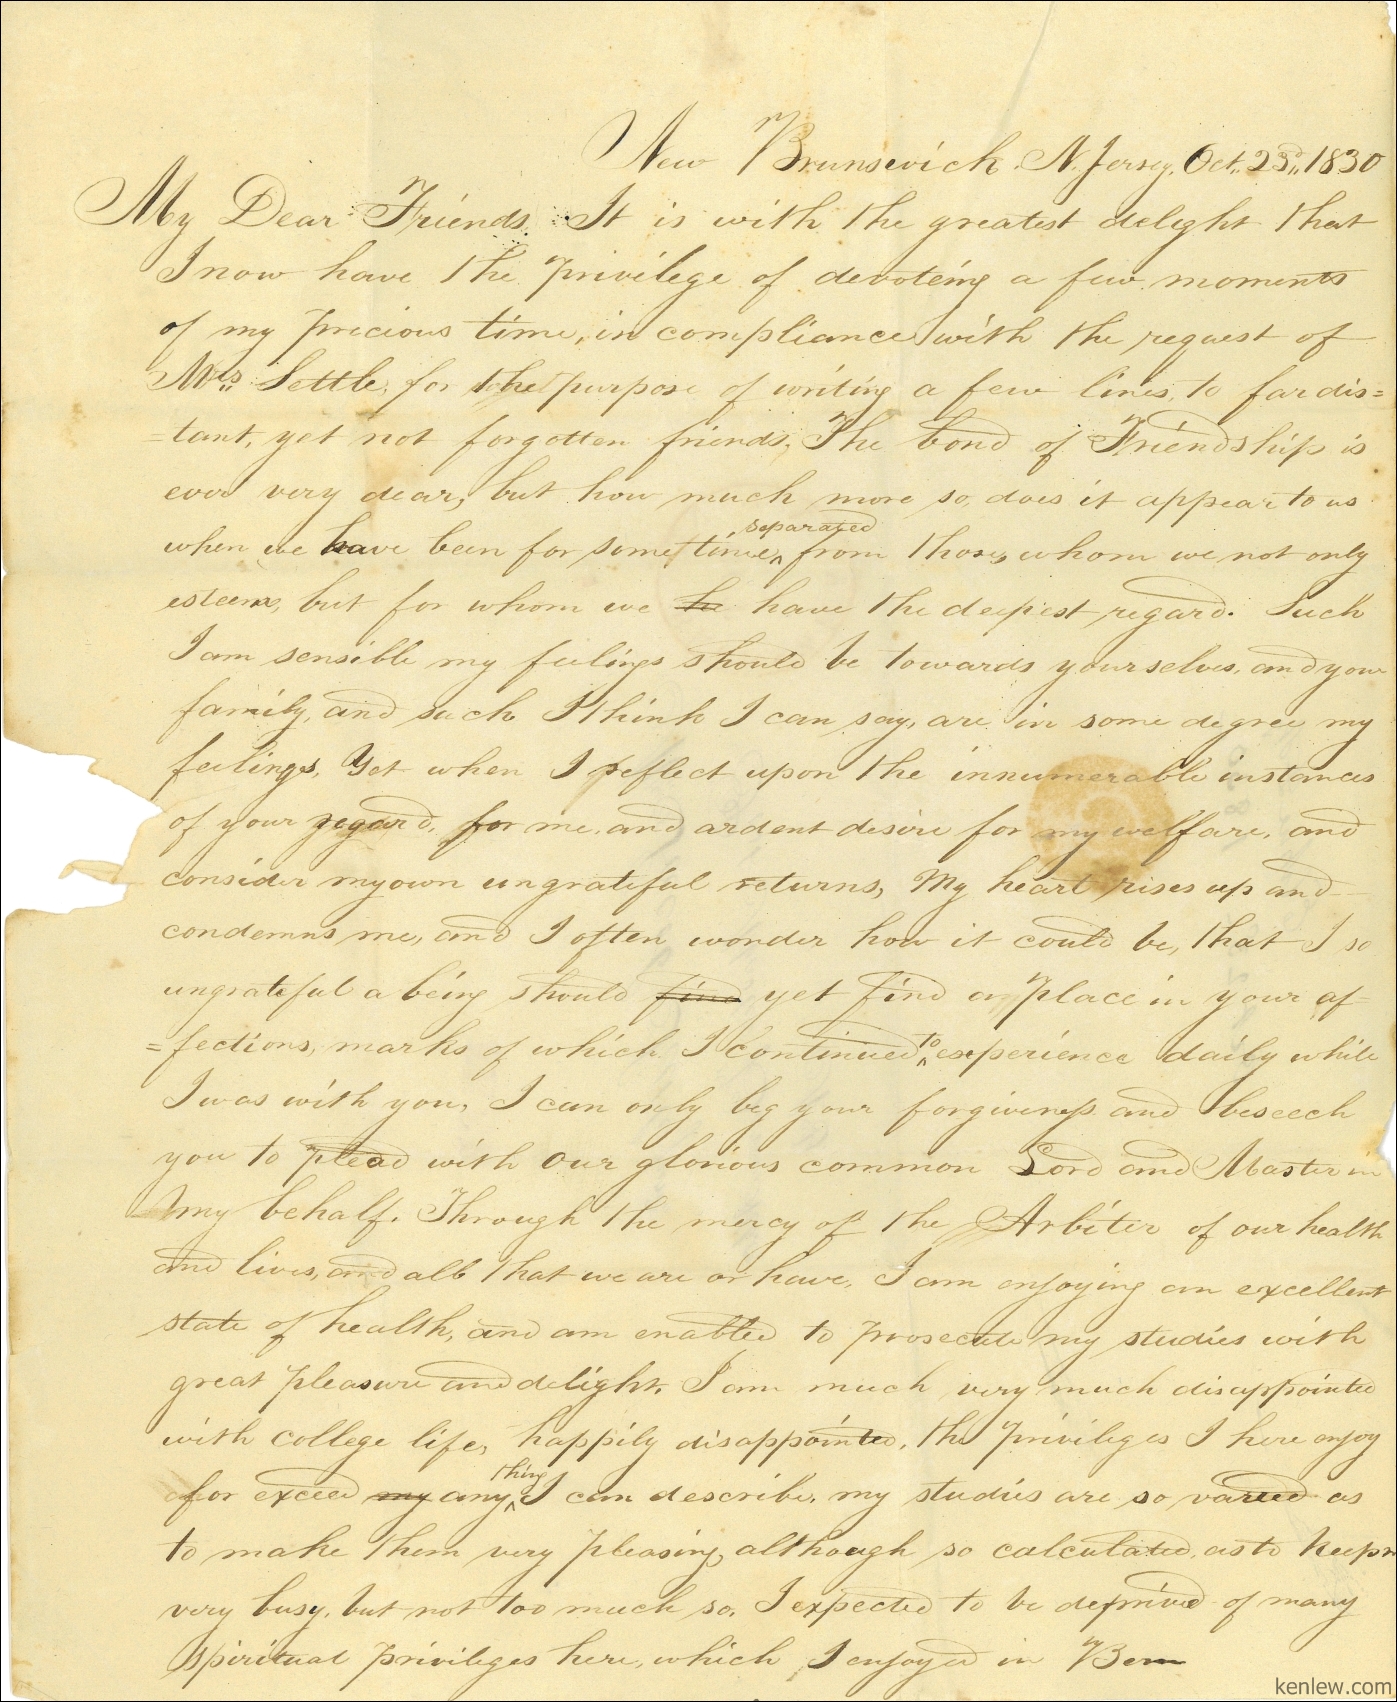 New Brunswick. N. Jersey, Oct. 23d, 1830
My Dear Friends. It is with the greatest delight that
I now have the privilege of devoteing a few moments
of my precious time, in compliance with the request of
Mrs Settle, for the purpose of writing a few lines, to far dis=
=tant, yet not forgotten friends, The bond of Friendship is
ever very dear, but how much more so, does it appear to us
when we have been for some time, separated from those, whom we not only
esteem, but for whom we he have the deepest regard. Such
I am sensible my feelings should be towards yourselves, and your
family, and such I think I can say, are in some degree my
feelings, Yet when I reflect upon the innumerable instances
of your regard, for me, and ardent desire for my welfare, and
consider my own ungrateful returns, My heart rises up and
condemns me, and I often wonder how it could be, that I so
ungrateful a being should find yet find a place in your af-
=fections, marks of which I continued to experience daily while
I was with you, I can only beg your forgiveness and beseech
you to plead with our glorious common Lord and Master in
my behalf. Through the mercy of the Arbiter of our health
and lives, and all that we are or have, I am enjoying an excellent
state of health, and am enabled to prosecute my studies with
great pleasure and delight. I am much very much disappointed
with college life, happily disappointed, the privileges I here enjoy
far exceed my any thing I can describe, my studies are so varied as
to make them very pleasing, although so calculated, as to keep m
very busy, but not too much so, I expected to be deprived of many
spiritual privileges here, which I enjoyed in Bern
kenlew.com